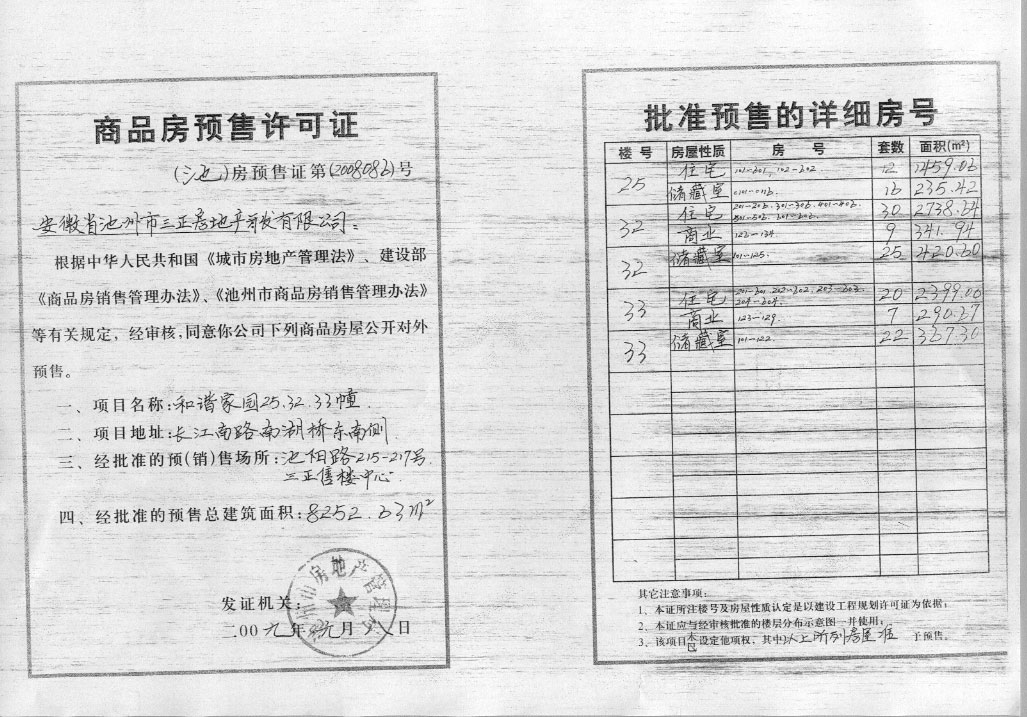 商品房预售许可证
(池)房预售证第(2008086)号
安徽省池州市三正房地产开发有限公司:
根据中华人民共和国《城市房地产管理法》、建设部
《商品房销售管理办法》、《池州市商品房销售管理办法》
等有关规定，经审核，同意你公司下列商品房屋公开对外
预售。
一、项目名称:和谐家园25.32.33幢
二、项目地址:长江南路南湖桥东南侧
三、经批准的预(销)售场所:池阳路215-217号
三正售楼中心
四、经批准的预售总建筑面积:8252.63m²
发证机关:
房地产管理
二00九年元月 八日
批准预售的详细房号
楼号 房屋性质 房号 套数 面积(m²)
25 住宅 101-601、102-602 12 1459.06
储藏室 16 235.42
32 住宅 201-206、301-306、401-406、 30 2738.64
501-506、601-606.
商业 9 341.94
32 储藏室 101-125. 25 420.60
33 住宅 201-601、202-602、203-603、 20 2399.00
204-604.
商业 123-129. 7 290.37
33 储藏室 101-122. 22 367.30
其它注意事项:
1、本证所注楼号及房屋性质认定是以建设工程规划许可证为依据;
2、本证应与经审核批准的楼层分布示意图一并使用;
3、该项目未已设定他项权，其中以上所列房屋准 予预售。